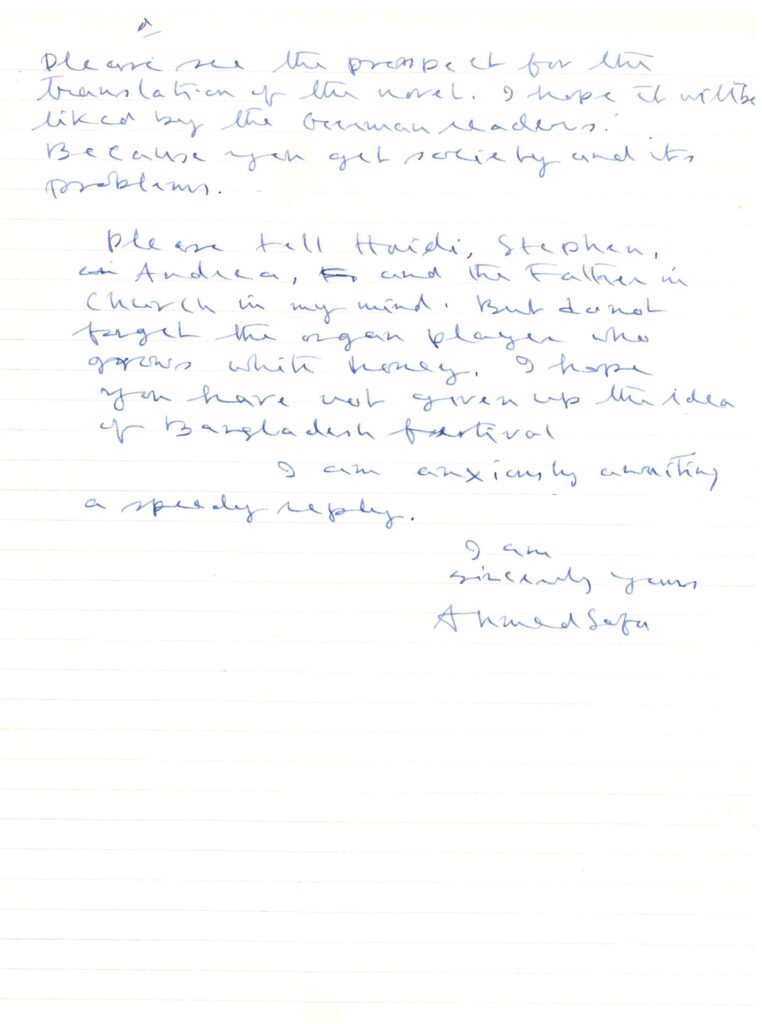 Please see the prospect for the
translation of the novel. I hope it will be
liked by the German readers.
Because you get society and its
problems.
Please tell Haidi, Stephen,
Andrea, and the Father in
Church in my mind. But donot
forget the organ player who
grows white honey. I hope
you have not given up the idea
of Bangladesh festival
I am anxiously awaiting
a speedy reply.
I am
sincerely yours
Ahmed Safa